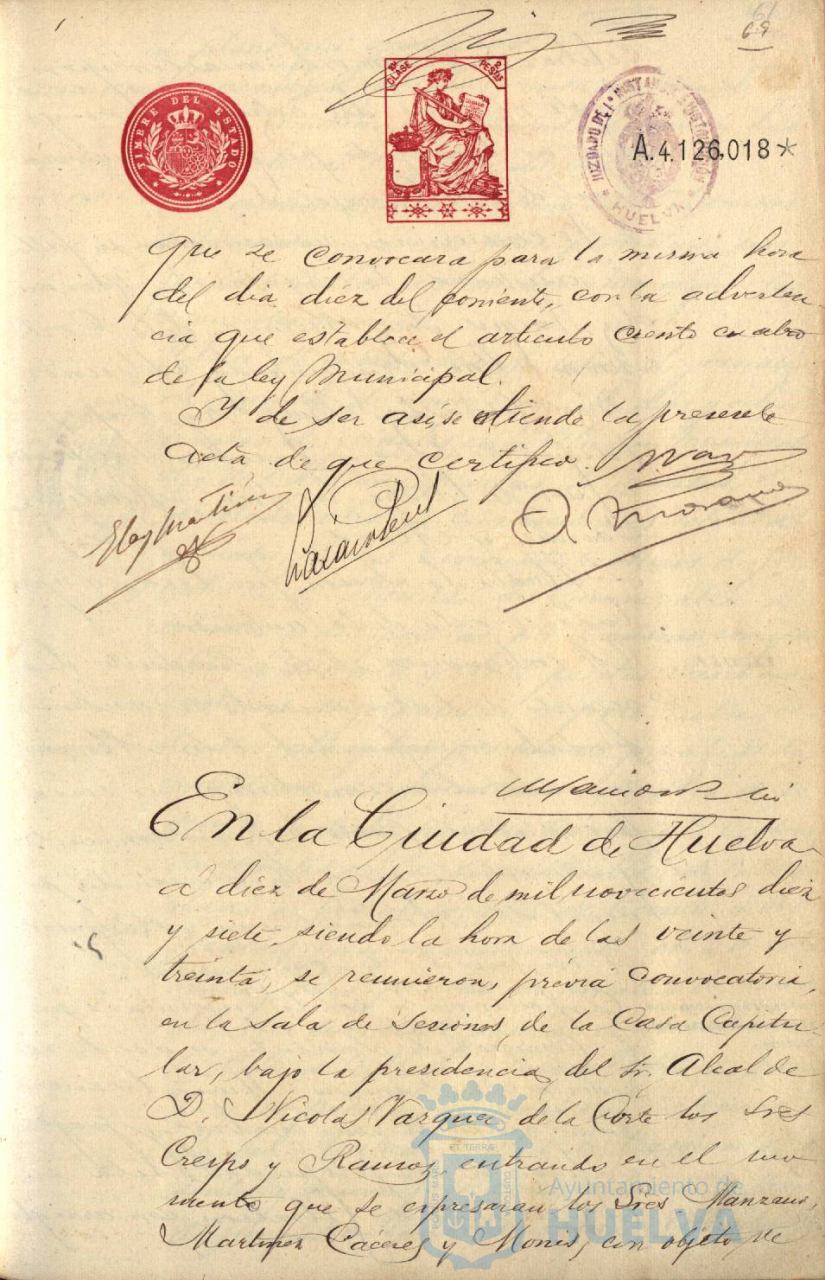 69
TIMBRE DEL ESTADO
CLASE
PESETAS
JUZGADO DE 1ª INSTANCIA
HUELVA
A.4.126.018*
que se convocara para la misma hora
del dia diez del corriente, con la adverten-
cia que establece el articulo ciento cuatro
de la ley Municipal.
Y de ser así se etiende la presente
Acta de que certifico.
En la Ciudad de Huelva
á diez de Marzo de mil novecientos diez
y siete, siendo la hora de las veinte y
treinta, se reunieron, prévia convocatoria,
en la Sala de Sesiones, de la Casa Capitu-
lar, bajo la presidencia, del Sr. Alcalde
D. Nicolas Vazquez de la Corte los Sres
Crespo y Ramos, entrando en el mo-
mento que se expresaran los Sres Manzano,
Martinez Cáceres y Mones, con objeto de
Ayuntamiento de
HUELVA